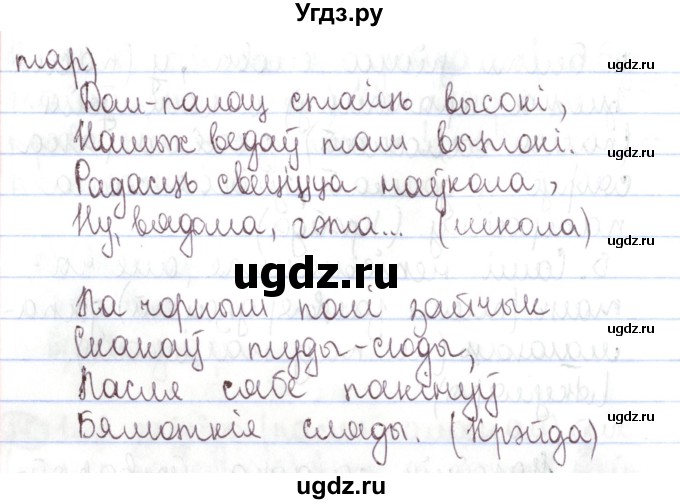 Угдз.ру
тар)
Дом-палац стаіць высокі,
Нашых ведаў там вытокі.
Радасць свеціцца наўкола,
Ну, вядома, гэта... (школа)
На чорным полі зайчык
Скакаў туды-сюды,
Пасля сабе пакінуў
Бялюткія сляды. (Крэйда)
ugdz.ru
ugdz.ru
ugdz.ru
ugdz.ru
ugdz.ru
ugdz.ru
ugdz.ru